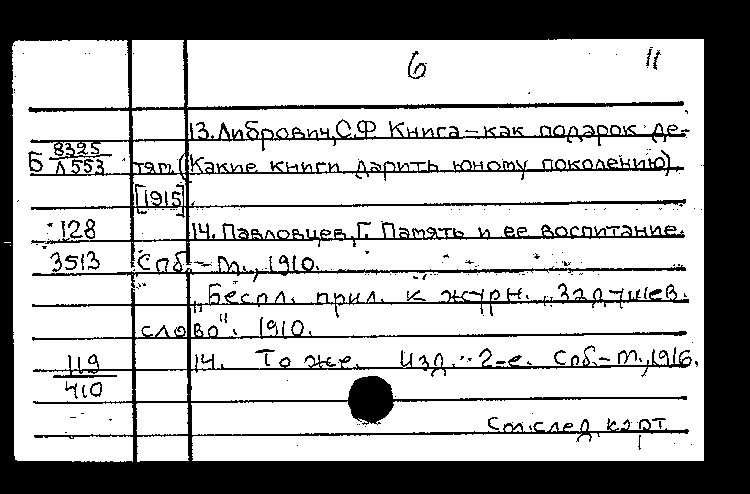 6 11
13. Либрович, С.Ф Книга – как подарок де-
Б 8325/Л553 тям. (Какие книги дарить юному поколению).
[1915]
128 14. Павловцев, Г. Память и ее воспитание.
3513 Спб. – М., 1910.
„Беспл. прил. к журн. „Задушев.
слово". 1910.
119/410 14. То же. Изд. 2-е. Спб. – М., 1916.
См. след. карт.